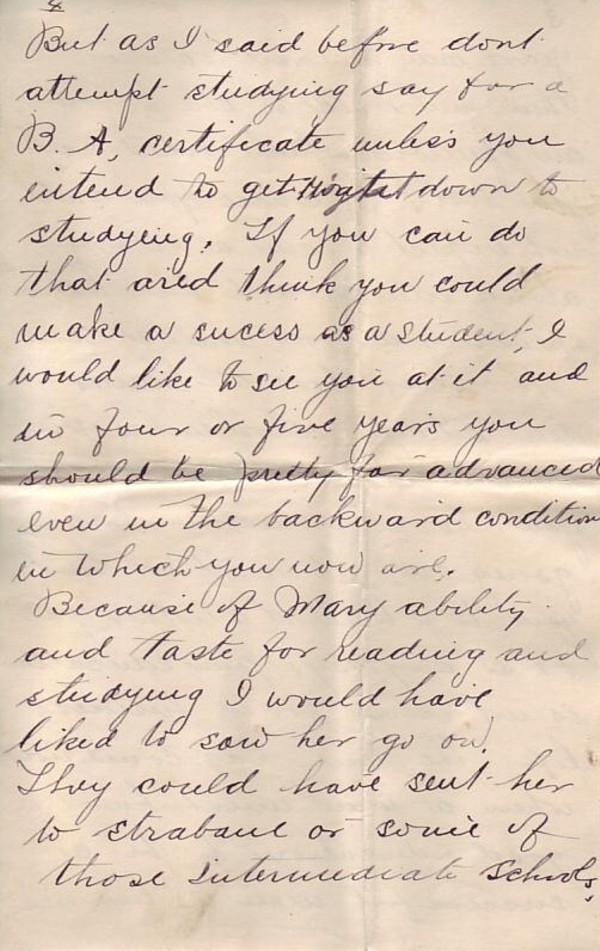 8
But as I said before dont
attempt studying say for a
B. A, certificate unless you
intend to get right down to
studying. If you can do
that and think you could
make a sucess as a student, I
would like to see you at it and
in four or five years you
should be pretty far advanced
even in the backward condition
in which you now are.
Because of Mary ability
and taste for reading and
studying I would have
liked to saw her go on.
They could have sent her
to strabane or some of
those intermediate schools,